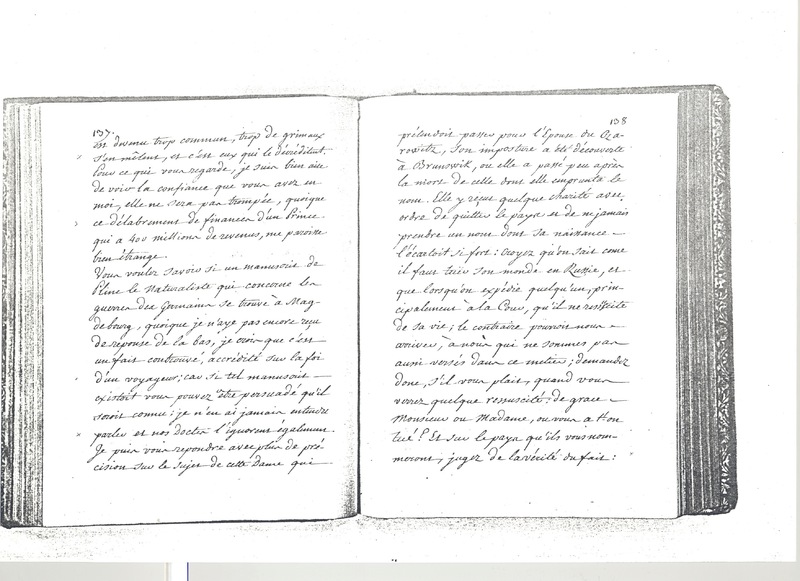 137.
est devenu trop commun, trop de grimaux
s'en mêlent, et c'est eux qui le décréditent.
Tous ce qui vous regarde, je suis bien aise
de voir la confiance que vous avez en
moi, elle ne sera pas trompée, quoique
ce délabrement de finances d'un Prince
qui a 400 millions de revenus, me paroisse
bien étrange.
Vous voulez savoir si un manuscrit de
Pline le Naturaliste qui concerne les
guerres des Germains se trouve à Mag-
debourg, quoique je n'aye pas encore reçu
de reponse de la bas, je crois que c'est
un fait controuvé, accrédité sur la foi
d'un voyageur; car si tel manuscrit
existoit vous pouvez être persuadé qu'il
seroit connu: je n'en ai jamais entendu
parler et nos Doctes l'ignorent également.
Je puis vous repondre avec plus de pré
cision sur le sujet de cette Dame qui
138
prétendoit passer pour l'Epouse du Cza-
rowitz, son imposture a été découverte
à Brunswik, ou elle a passé peu après
la mort de celle dont elle emprunta le
nom. Elle y reçut quelque charité avec
ordre de quitter le pays et de ne jamais
prendre un nom dont sa naissance
l'écartoit si fort: croyez qu'on sait come
il faut tuer son monde en Russie, et
que lorsqu'on expédie quelqu'un, prin-
cipalement à la Cour, qu'il ne resscite
de sa vie; le contraire pouvoit nous
arriver, à nous qui ne sommes pas
aussi versés dans ce metier; demandez
donc, s'il vous plait, quand vous
verez quelque ressuscité: de grace
Monsieur ou Madame, ou vous a t-on
tué? Et sur le pays qu'ils vous nom-
meront, jugez de la vérité du fait: